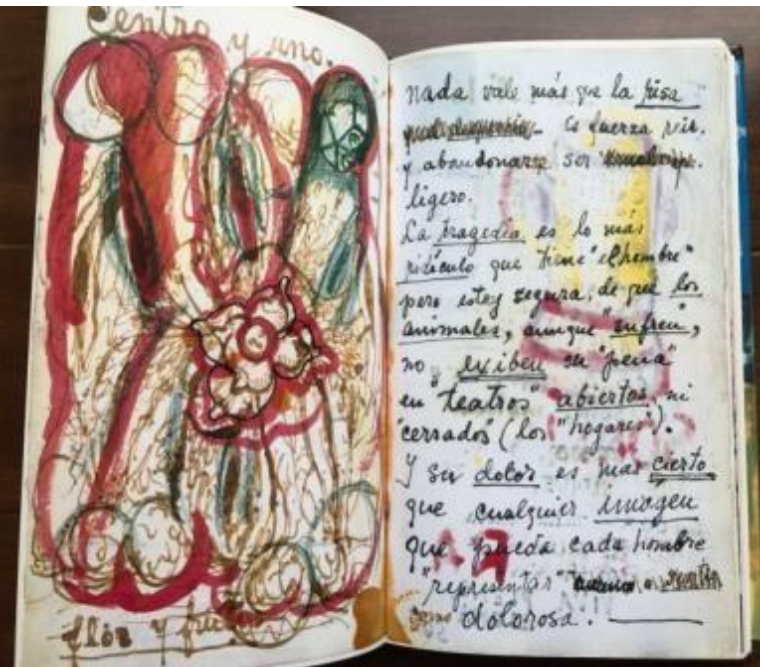 Centro y uno.
flor y fru
nada vale más que la risa
es fuerza reir.
y abandonarse ser
ligero.
La tragedia es lo más
ridículo que tiene "el hombre"
pero estoy segura, de que los
animales, aunque "sufren",
no exiben su "pena"
en "teatros" abiertos, ni
"cerrados" (los "hogares").
Y su dolor es mas cierto
que cualquier imagen
que pueda cada hombre
"representar"
como dolorosa.